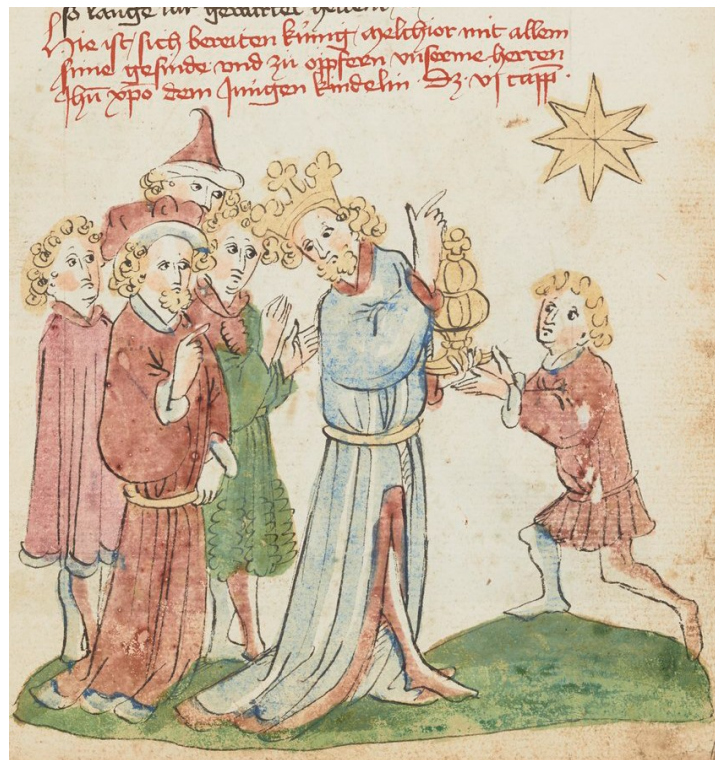 so lange nit gewartet hetten
Hie ist sich bereiten kúnig melchior mit allem
sinne gesinde vnd zú opffern vnserme herren
Jhū xp̄o dem Jungen kindelin Dz vj capp̄